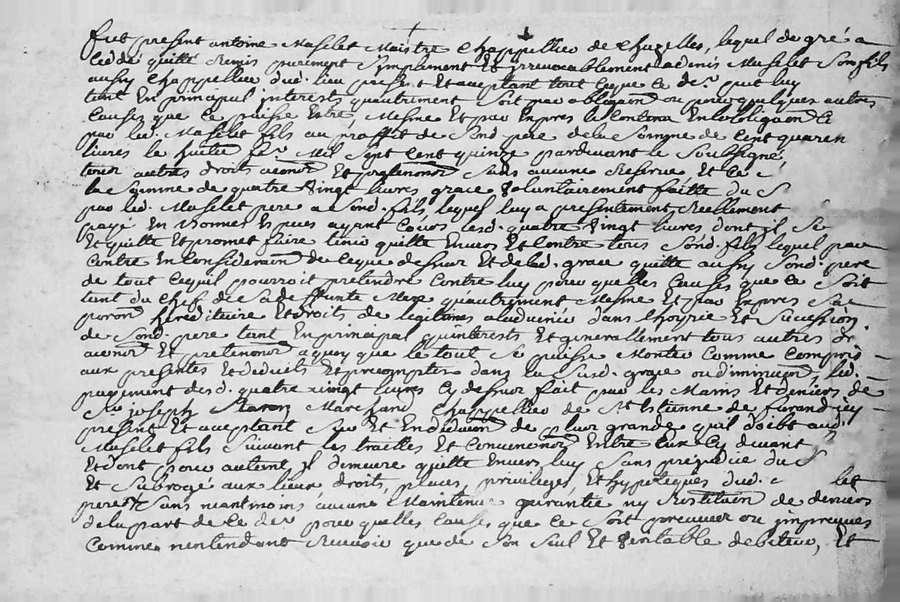 fut present antoine Maselet Maistre Chappellier de Chazelles, lequel de gré a
ceddé quitté Remis purement Simplement Et irrevocablement a denis Maselet Son fils
aussy Chappellier dud. lieu present Et aceptant tout ce que ce dr. peut luy
tant En principal interests qu'autrement Soit par obligaon ou pour quelques autres
Causes que ce puisse Estre, Mesme Et par Exprès le Contenu En l'obligaon
par led. Maselet fils au proffit de Sond. pere de la Somme de Cent quaren
livres le huitie Mil Sept Cent quinze pardevant le Soubsigné
tous autres droits Et Sans aucune Reserve, Et ce
la Somme de quatre Vingt livres grace Volontairement faitte du S
par led. Maselet pere a Sond. fils lequel luy a presentement Reellement
payé En bonnes Espèces ayant Cours lesd. quatre Vingt livres dont il Se
Et quitte Et promet faire tenir quitte Envers Et Contre tous Sond. fils lequel par
Contre En Consideraon de Ce que dessus Et de lad. grace quitte aussy Sond. pere
de tout Ce qu'il pourroit pretendre Contre luy pour quelles Causes que ce Soit
tant du Chef de Sa deffunte Mere qu'autrement Mesme Et par Exprès Sa
poron hereditaire Et droits de legitimes a luy dans l'hoyrie Et Sucession
de Sond. pere tant En principal qu'interests Et generallement tous autres
Et a quoy que le tout Se puisse Monter Comme Compris
aux presentes Et deduits Et dans la Susd. grace ou diminuent led.
payement desd. quatre vingt livres Cy dessus fait par les Mains Et deniers de
Sr. joseph Marchand Chappellier de St. Etienne de furand icy
present Et aceptant Sur Et En deduon de plus grande qu'il doibt aud.
Maselet fils Suivant les traittés Et Convenons Entre Eux Cy devant
Et dont pour autant il demeure quitte Envers luy Sans prejudice du S
Et Subrogé aux lieux, droit, places, privileges, Et hypoteques dud. let
pere Sans neantmoins aucune Maintenue garantie ny Restituon de deniers
de la part de Ce der pour quelles Causes que ce Soit preveues ou impreveues
Comme n'entendant Recevoir que de Son Seul Et Véritable debiteur, Et